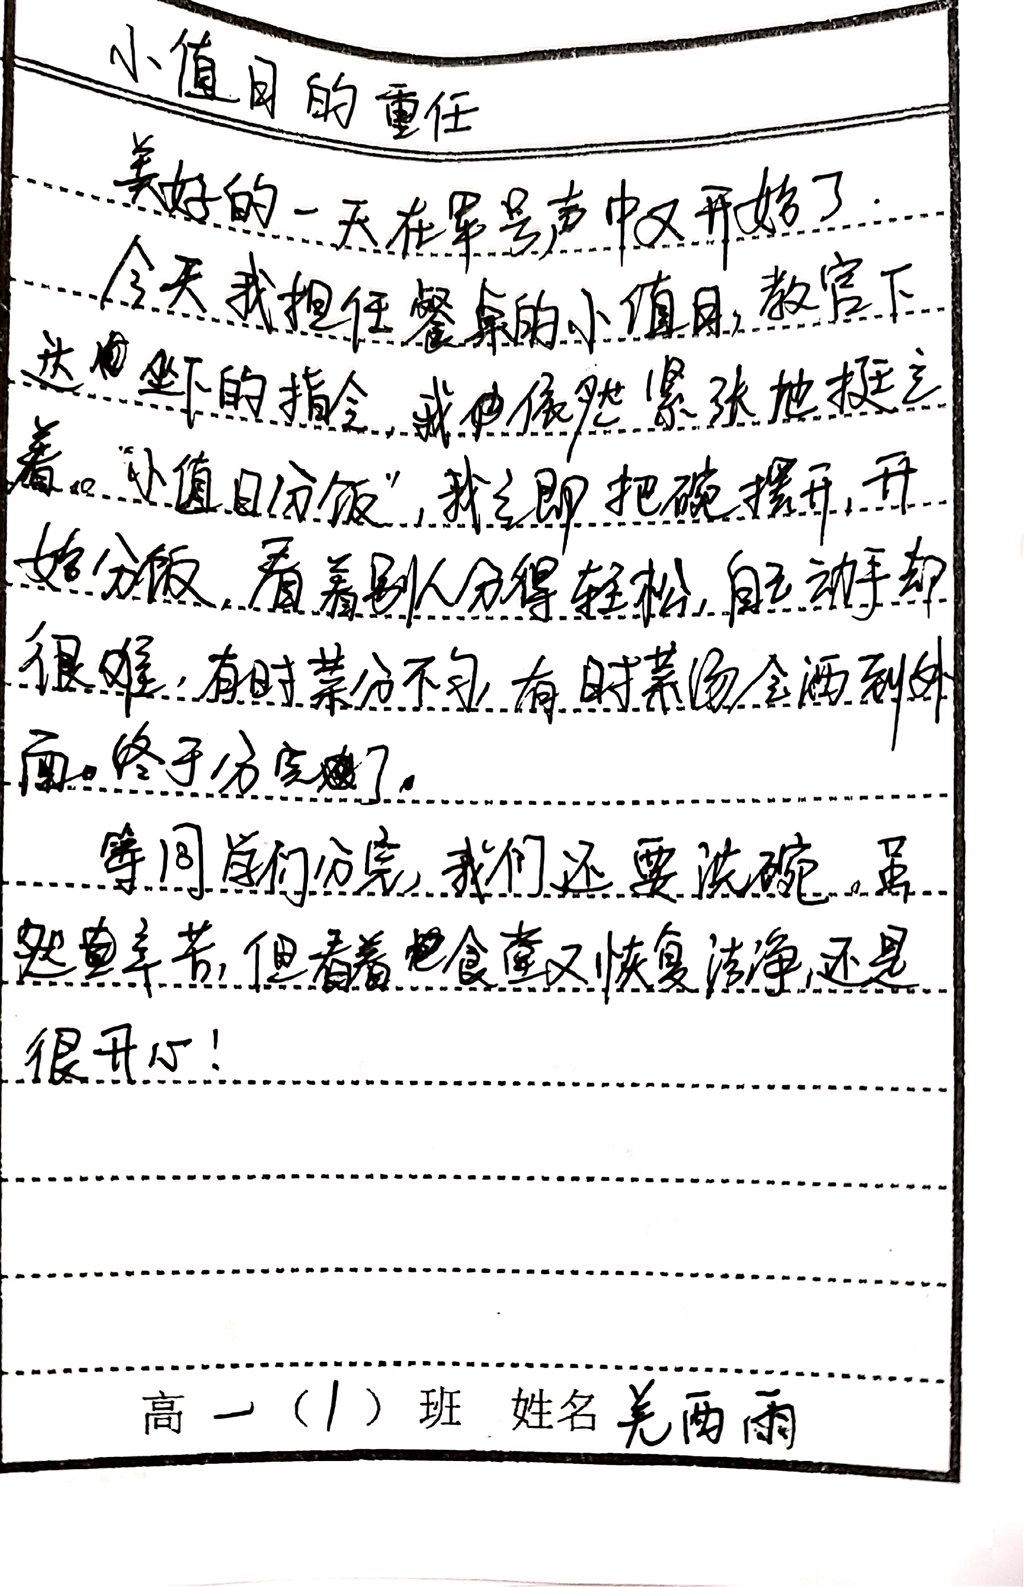 小值日的重任
美好的一天在军号声中又开始了.
今天我担任餐桌的小值日,教官下
达坐下的指令,我依然紧张地挺立
着。“小值日分饭”,我立即把碗摆开,开
始分饭,看着别人分得轻松,自己动手却
很难,有时菜分不匀,有时菜汤会洒到外
面。终于分完了。
等同学们分完,我们还要洗碗。虽
然辛苦,但看着食堂又恢复洁净,还是
很开心!
高一(1)班 姓名 西雨